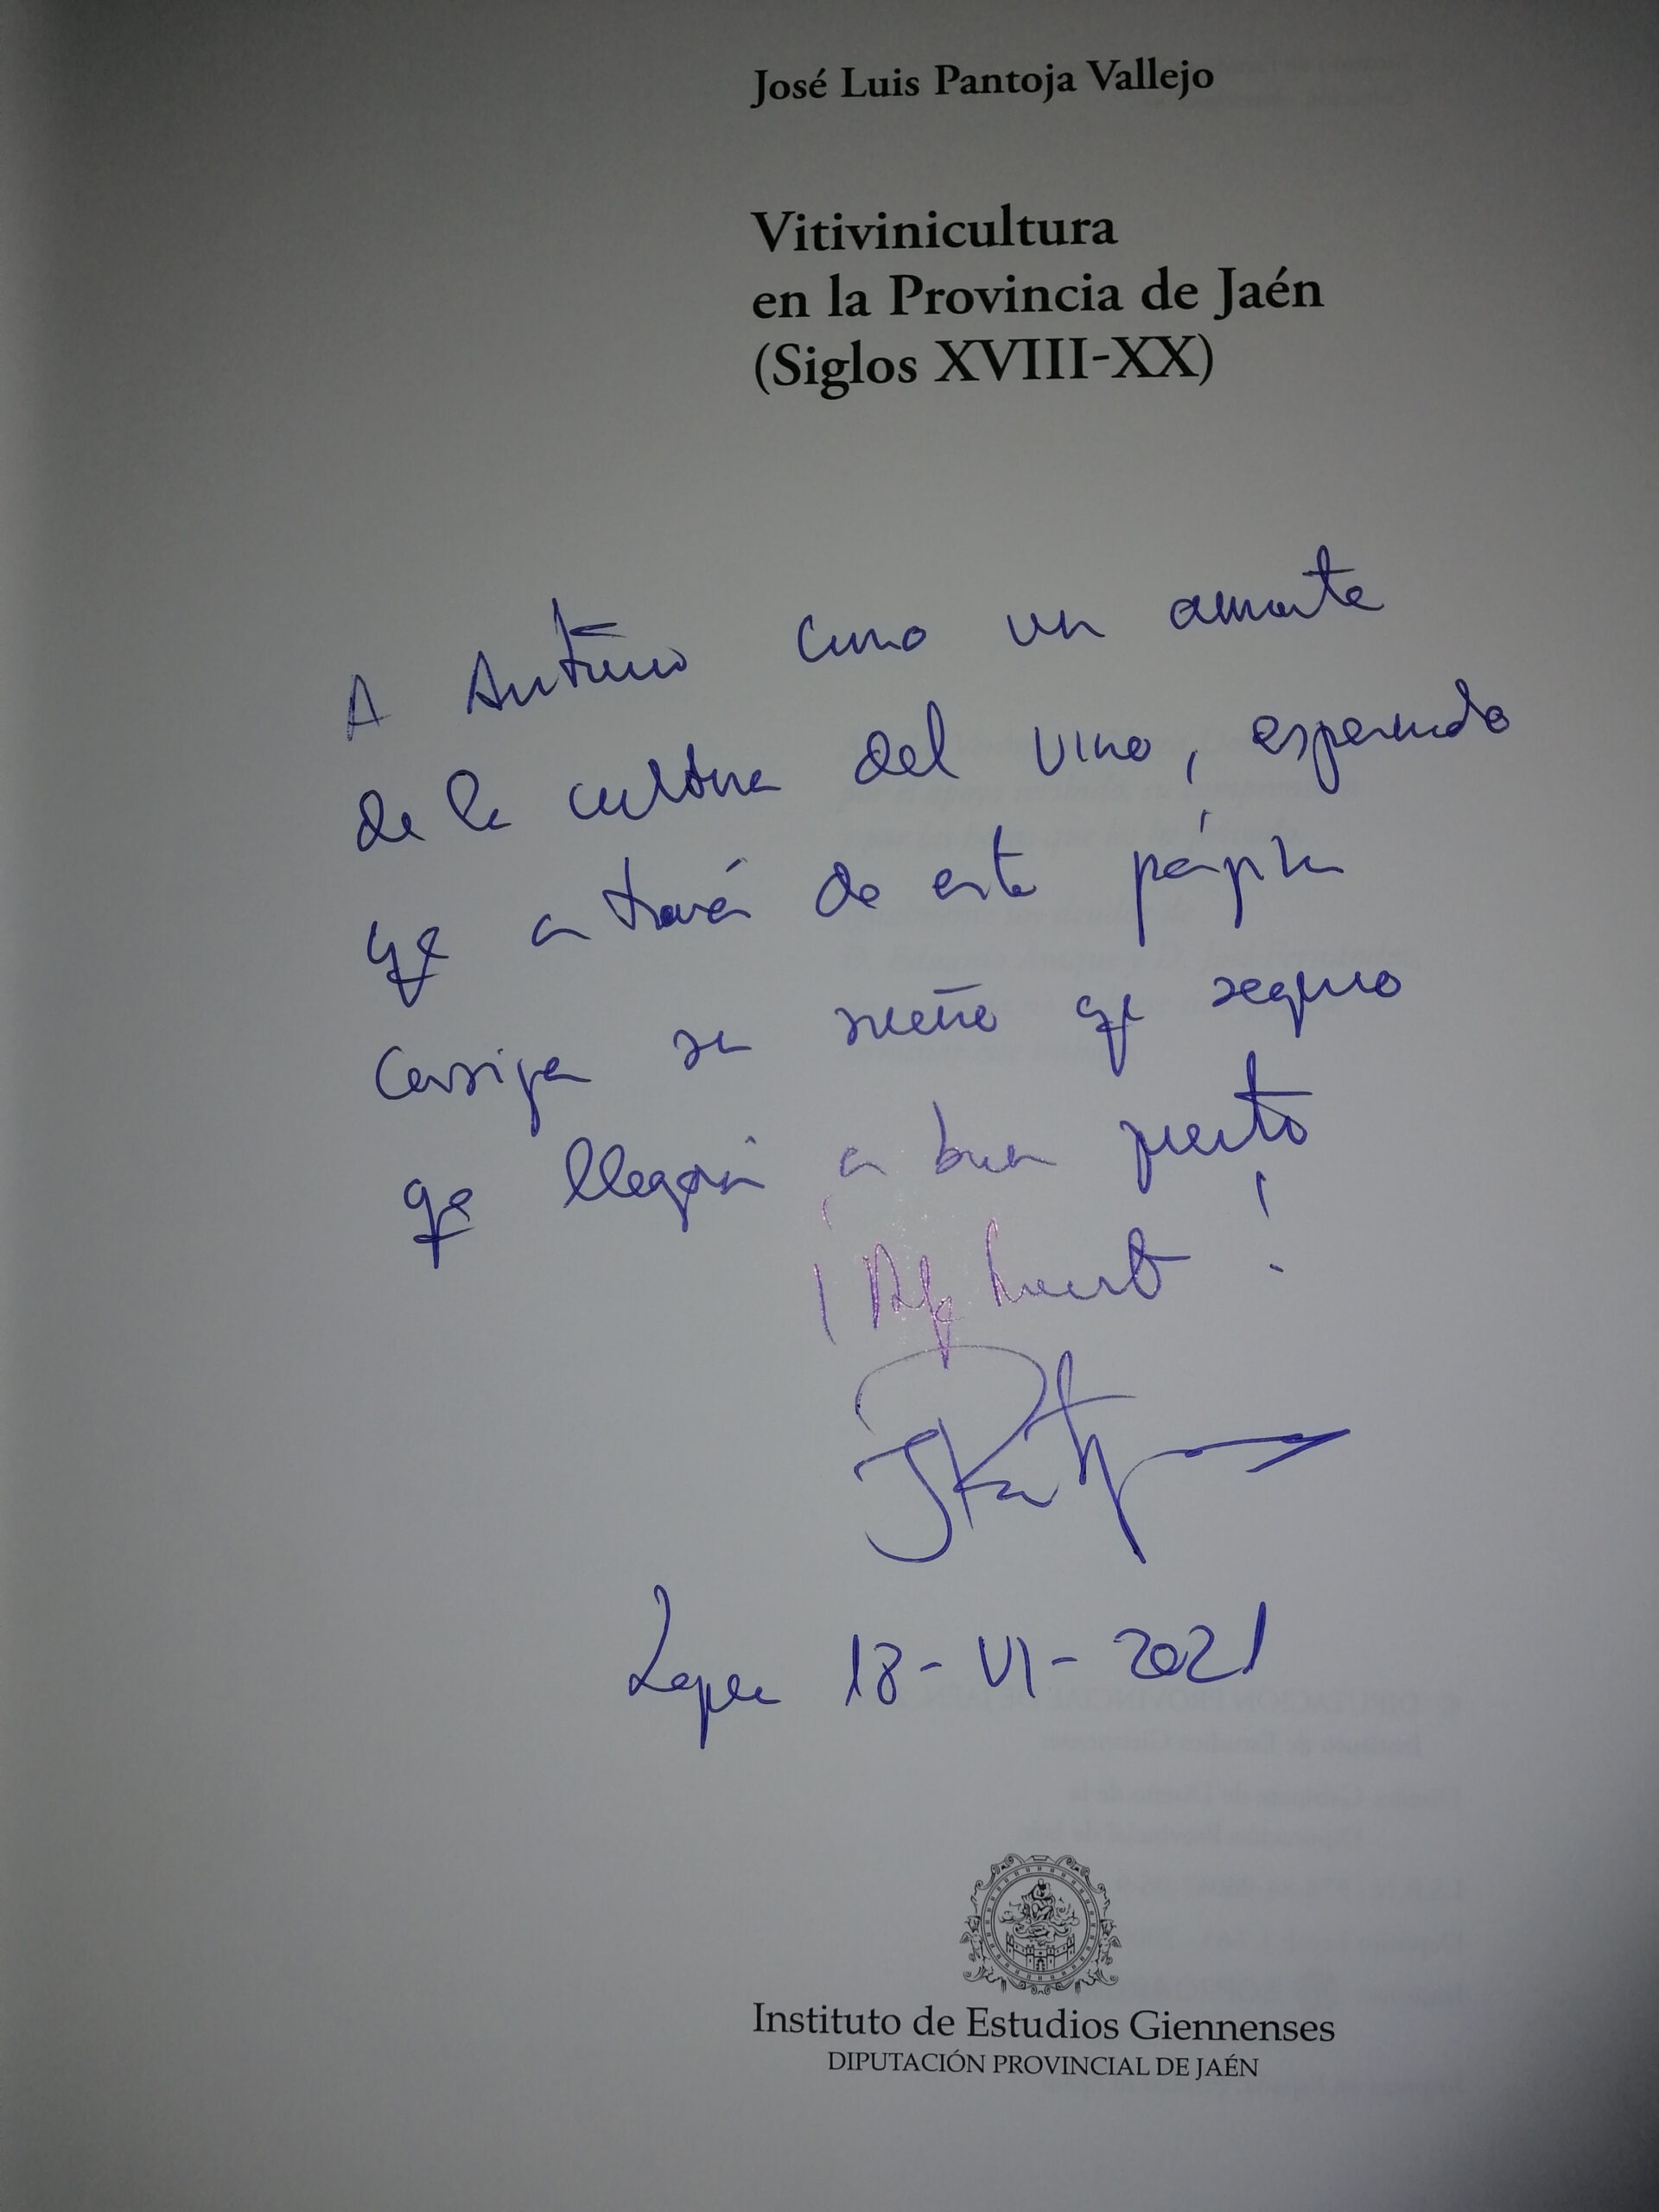 José Luis Pantoja Vallejo
Vitivinicultura
en la Provincia de Jaén
(Siglos XVIII-XX)
A Antonio como un amante
de la cultura del vino, esperando
qe a través de este
consiga su sueño qe seguro
qe llegará a buen puerto
Lopera 18-VI-2021
Instituto de Estudios Giennenses
DIPUTACIÓN PROVINCIAL DE JAÉN